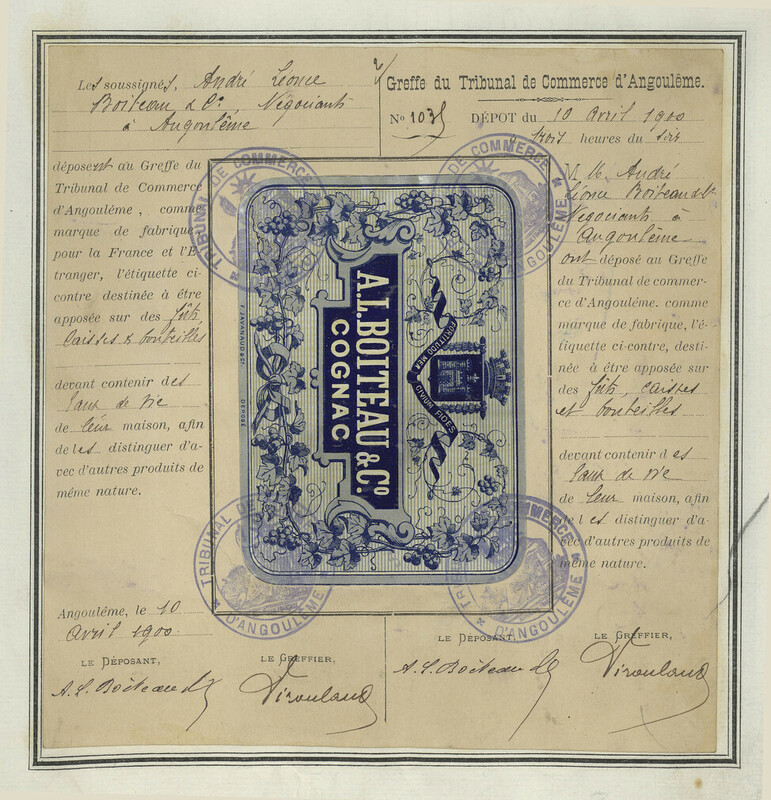 Les soussignés, André Léonce
Boiteau & Cie, Négociants
à Angoulême
déposent au Greffe du
Tribunal de Commerce
d'Angoulême, comme
marque de fabrique,
pour la France et l'É-
tranger, l'étiquette ci-
contre destinée à être
apposée sur des fûts
caisses & bouteilles
devant contenir des
Eaux de vie
de leur maison, afin
de les distinguer d'a-
vec d'autres produits de
même nature.
Angoulême, le 10
Avril 1900.
LE DÉPOSANT,
A. L. Boiteau & Co
LE GREFFIER,
Greffe du Tribunal de Commerce d'Angoulême.
No 1035 DÉPOT du 10 Avril 1900
à trois heures du soir
M M. André
Léonce Boiteau & Cie
Négociants à
Angoulême
ont déposé au Greffe
du Tribunal de commer-
ce d'Angoulême. comme
marque de fabrique, l'é-
tiquette ci-contre, desti-
née à être apposée sur
des fûts, caisses
et bouteilles
devant contenir des
Eaux de vie
de leur maison, afin
de les distinguer d'a-
vec d'autres produits de
même nature.
LE DÉPOSANT,
A. L. Boiteau & Co
LE GREFFIER,
A.L. BOITEAU & Co.
COGNAC
FORTITUDO MEA
CIVIUM FIDES
DÉPOSÉ
TRIBUNAL DE COMMERCE
D'ANGOULÊME
TRIBUNAL DE COMMERCE
D'ANGOULÊME
TRIBUNAL DE COMMERCE
D'ANGOULÊME
TRIBUNAL DE COMMERCE
D'ANGOULÊME